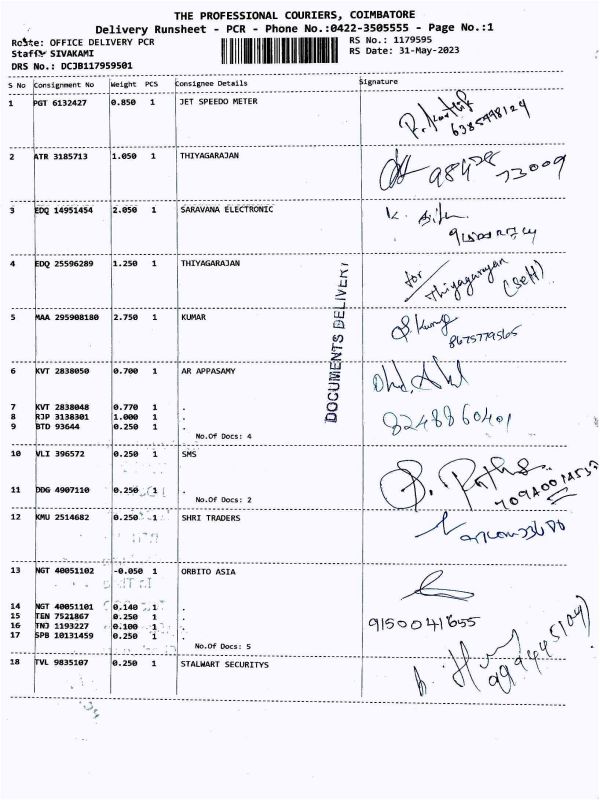 THE PROFESSIONAL COURIERS, COIMBATORE
Delivery Runsheet - PCR - Phone No.:0422-3505555 - Page No.:1
Route: OFFICE DELIVERY PCR RS No.: 1179595
Staff: SIVAKAMI RS Date: 31-May-2023
DRS No.: DCJB117959501
S No Consignment No Weight PCS Consignee Details Signature
1 PGT 6132427 0.850 1 JET SPEEDO METER
2 ATR 3185713 1.050 1 THIYAGARAJAN
3 EDQ 14951454 2.050 1 SARAVANA ELECTRONIC
4 EDQ 25596289 1.250 1 THIYAGARAJAN for
Thiyagarayan
(Self)
5 MAA 295908180 2.750 1 KUMAR
8675779565
DOCUMENTS DELIVERY
6 KVT 2838050 0.700 1 AR APPASAMY
7 KVT 2838048 0.770 1 .
8 RJP 3138301 1.000 1 .
9 BTD 93644 0.250 1 . 8248860401
No.Of Docs: 4
10 VLI 396572 0.250 1 SMS
11 DDG 4907110 0.250 1 .
No.Of Docs: 2
12 KMU 2514682 0.250 1 SHRI TRADERS
13 NGT 40051102 -0.050 1 ORBITO ASIA
14 NGT 40051101 0.140 1 .
15 TEN 7521867 0.250 1 . 9150041655
16 TNJ 1193227 0.100 1 .
17 SPB 10131459 0.250 1 .
No.Of Docs: 5
18 TVL 9835107 0.250 1 STALWART SECURITYS